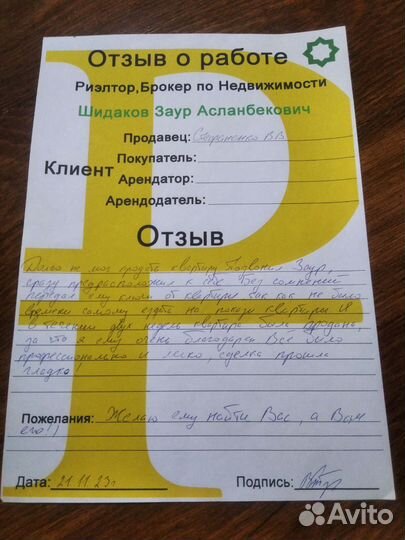 Отзыв о работе
Риэлтор,Брокер по Недвижимости
Шидаков Заур Асланбекович
Продавец: Стефаненко В.В.
Покупатель:
Клиент
Арендатор:
Арендодатель:
Отзыв
Долго не мог продать квартиру. Позвонил Заур,
сразу предрасположил к себе. Без сомнений
передал ему ключи от квартиры так как не было
времени самому ездить на показ квартиры. И
в течении двух недель квартира была продана,
за что я ему очень благодарен. Все было
профессионально и легко, сделка прошла
гладко.
Пожелания: Желаю ему найти Вас, а Вам
его!)
Дата: 21.11.23г
Подпись:
Avito